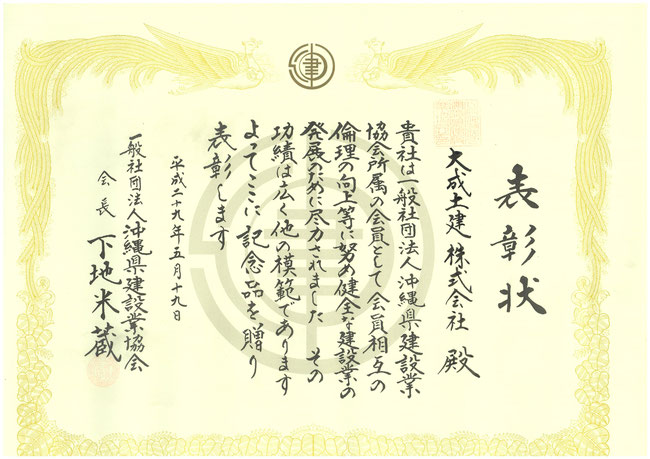 表彰状
大成土建株式会社 殿
貴社は一般社団法人沖縄県建設業
協会所属の会員として会員相互の
倫理の向上等に努め健全な建設業の
発展のために尽力されました その
功績は広く他の模範であります
よってここに記念品を贈り
表彰します
平成二十九年五月十九日
一般社団法人沖縄県建設業協会
会長 下地米蔵
建